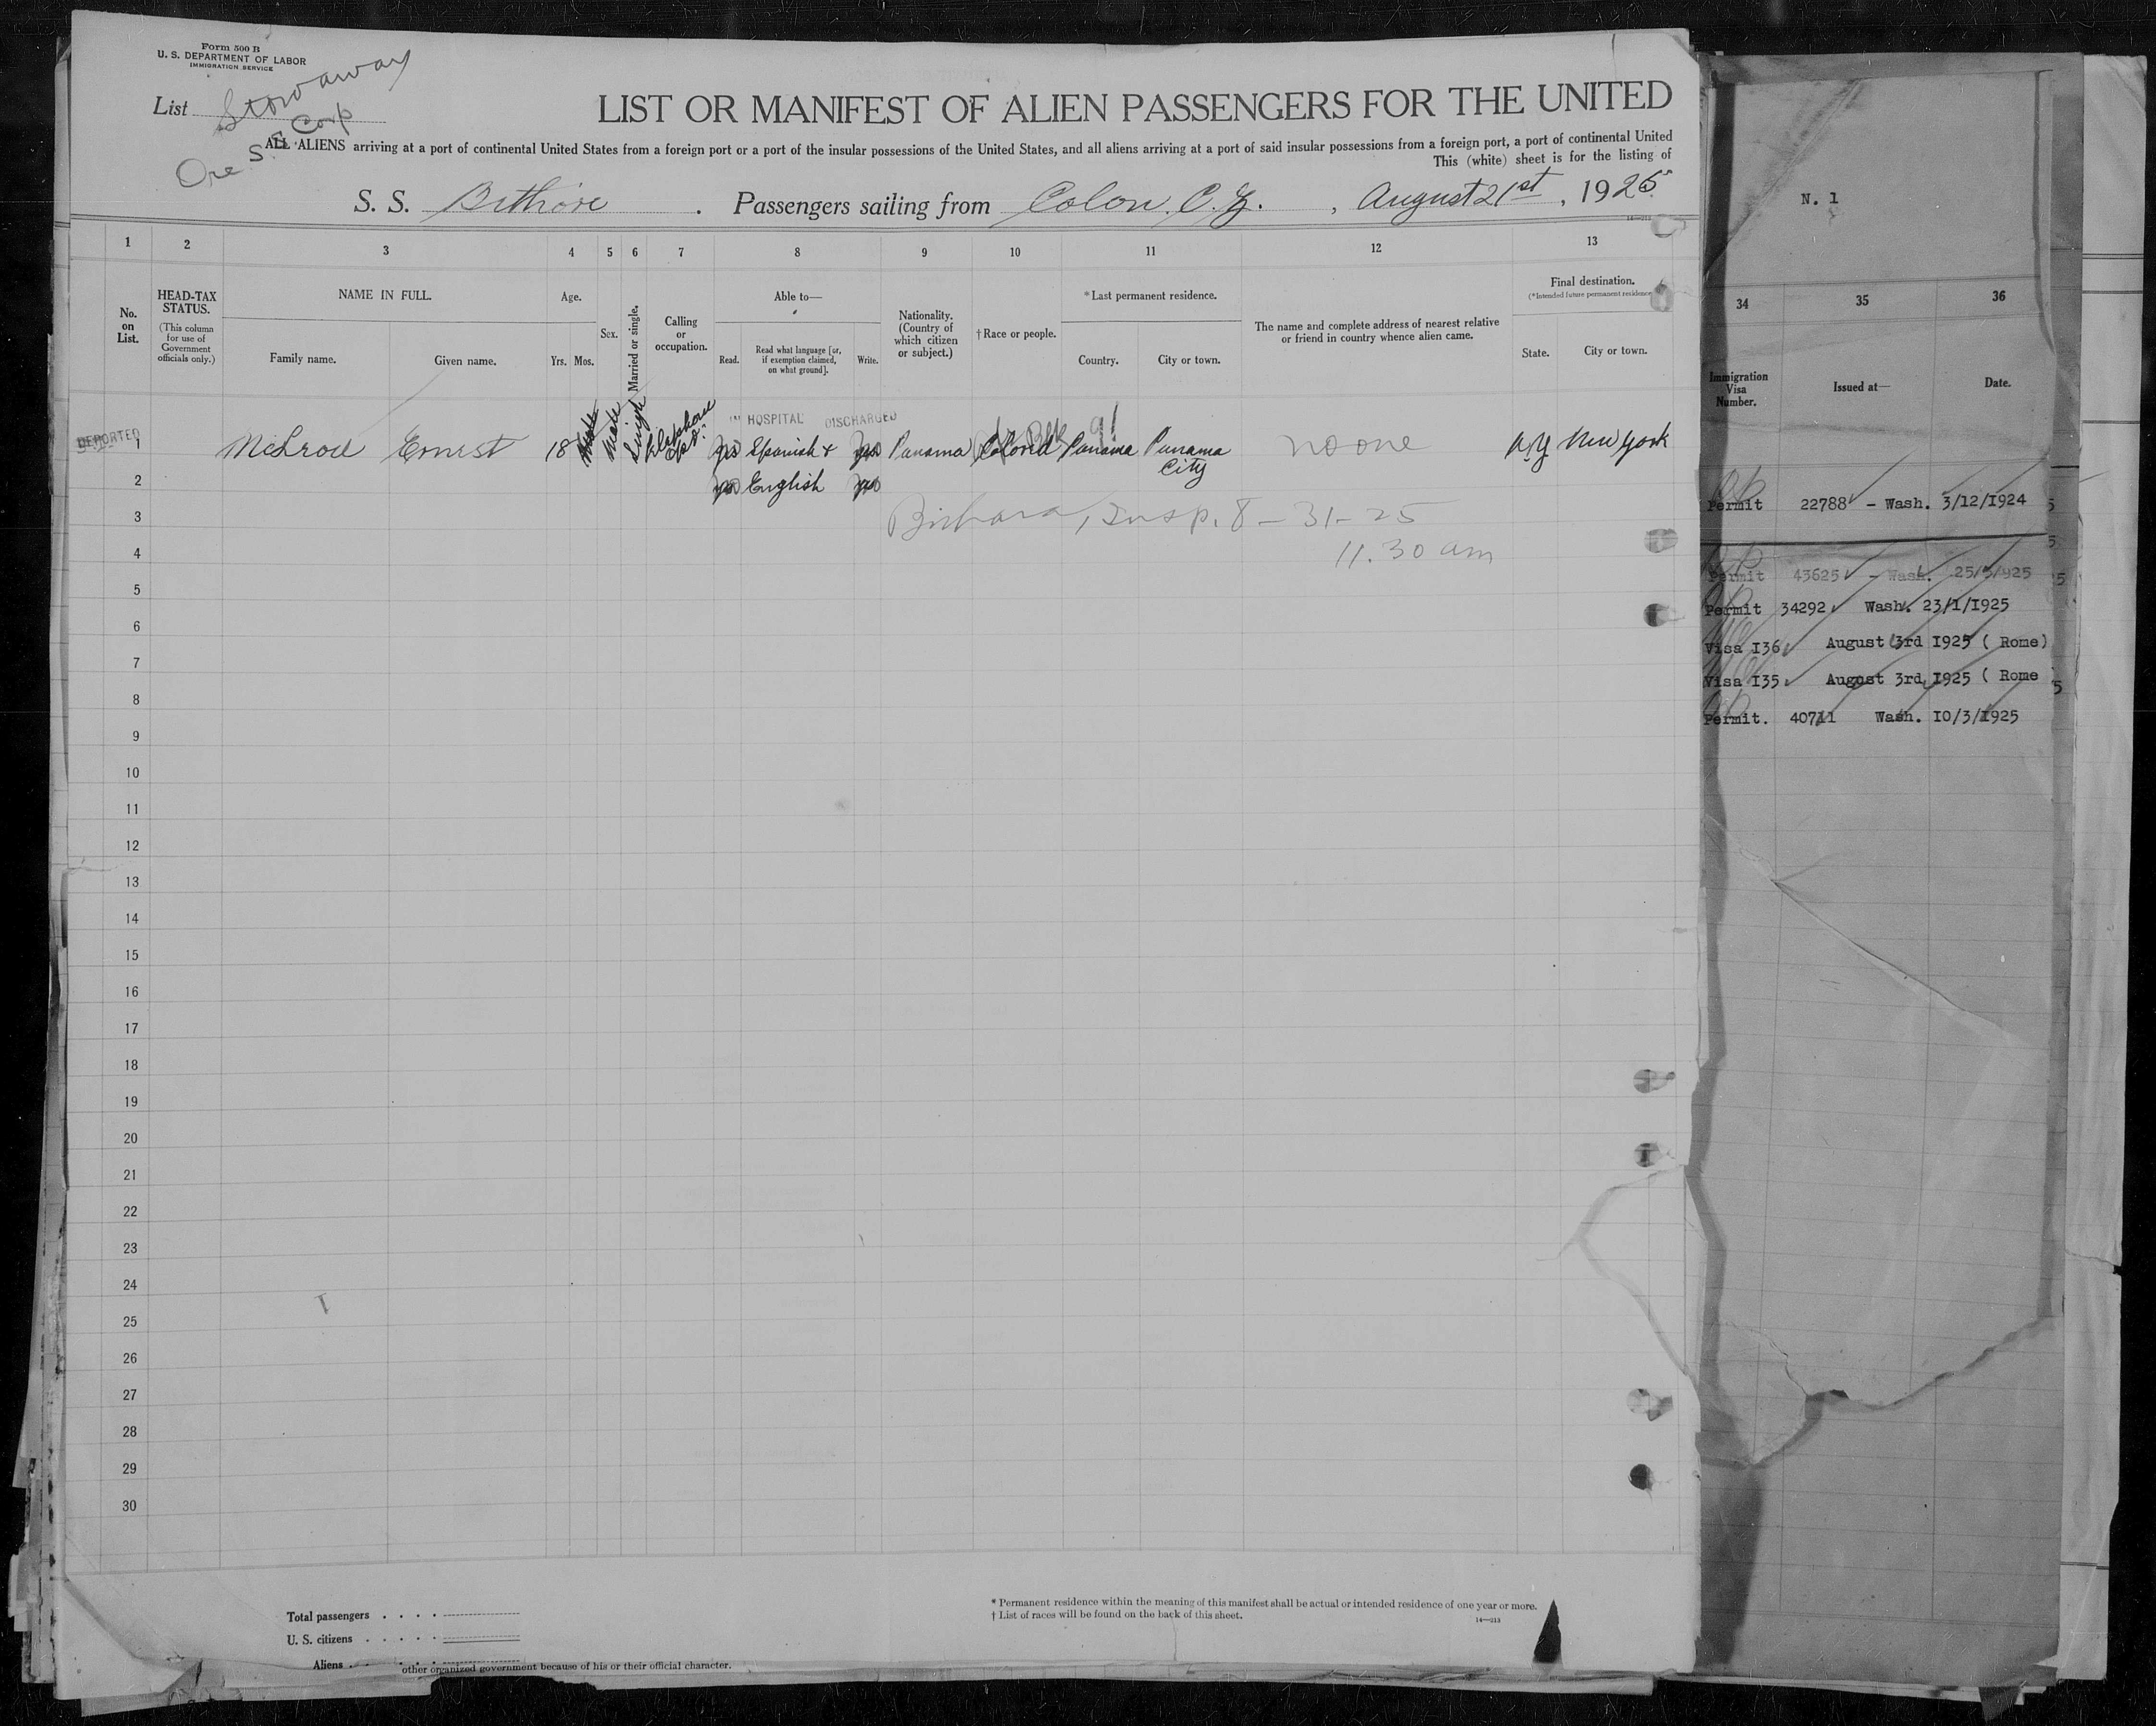 Form 500 B
U. S. DEPARTMENT OF LABOR
IMMIGRATION SERVICE
List Stowaway
Ore S.S. Corp
LIST OR MANIFEST OF ALIEN PASSENGERS FOR THE UNITED
ALL ALIENS arriving at a port of continental United States from a foreign port or a port of the insular possessions of the United States, and all aliens arriving at a port of said insular possessions from a foreign port, a port of continental United
This (white) sheet is for the listing of
S. S. Bethore . Passengers sailing from Colon. C.Z. , August 21st , 1925
1 2 3 4 5 6 7 8 9 10 11 12 13
No. on List.
HEAD-TAX STATUS.
(This column for use of Government officials only.)
NAME IN FULL.
Family name. Given name.
Age.
Yrs. Mos.
Sex.
Married or single.
Calling or occupation.
Able to—
Read. Read what language [or, if exemption claimed, on what ground]. Write.
Nationality. (Country of which citizen or subject.)
†Race or people.
*Last permanent residence.
Country. City or town.
The name and complete address of nearest relative or friend in country whence alien came.
Final destination.
(*Intended future permanent residence
State. City or town.
IN HOSPITAL DISCHARGED
DEPORTED
1 Ernest 18 Male Single yes Spanish & yes Panama Colored Panama Panama City no one N.Y New York
91
2 yes English yes
3 Insp. 8-31-25
4 11.30 am
5
6
7
8
9
10
11
12
13
14
15
16
17
18
19
20
21
22
23
24
25
26
27
28
29
30
Total passengers . . . .
U. S. citizens . . . . .
Aliens . . . . .
other organized government because of his or their official character.
* Permanent residence within the meaning of this manifest shall be actual or intended residence of one year or more.
† List of races will be found on the back of this sheet.
14—213
N. 1
34 35 36
Immigration Visa Number.
Issued at—
Date.
Permit 22788 - Wash. 3/12/1924
Permit 43625 - Wash. 25/5/925
Permit 34292 Wash. 23/1/1925
Visa I36 August 3rd I925 ( Rome)
Visa I35 August 3rd I925 ( Rome
Permit. 40711 Wash. I0/3/I925